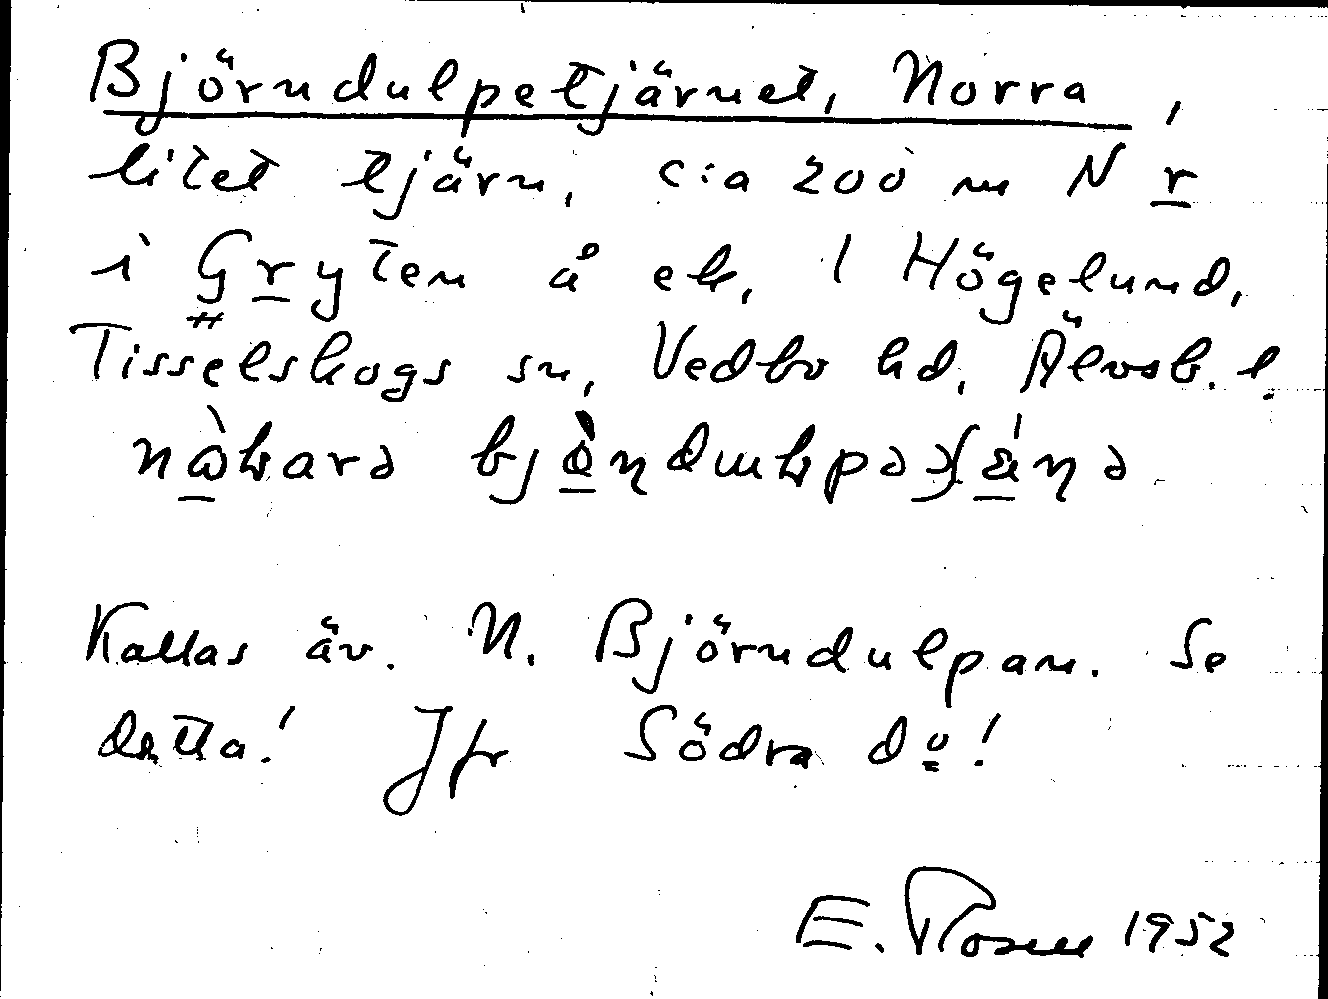 Björndulpetjärnet, Norra,
litet tjärn, c:a 200 m N r
i Gryten å ek, 1 Högelund,
Tisselskogs sn, Vedbo hd, Älvsb. l.
Kallas äv. N. Björndulpan. Se
detta! Jfr Södra do!
E. Rosell 1952